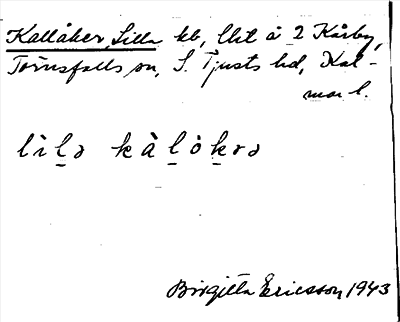 Kallåker, Lilla kb, lht å 2 Kårby,
Törnsfalls sn, S. Tjusts hd, Kal-
mar l.
lìl̠ə kàl̠òk̠rə
Birgitta Ericsson 1943